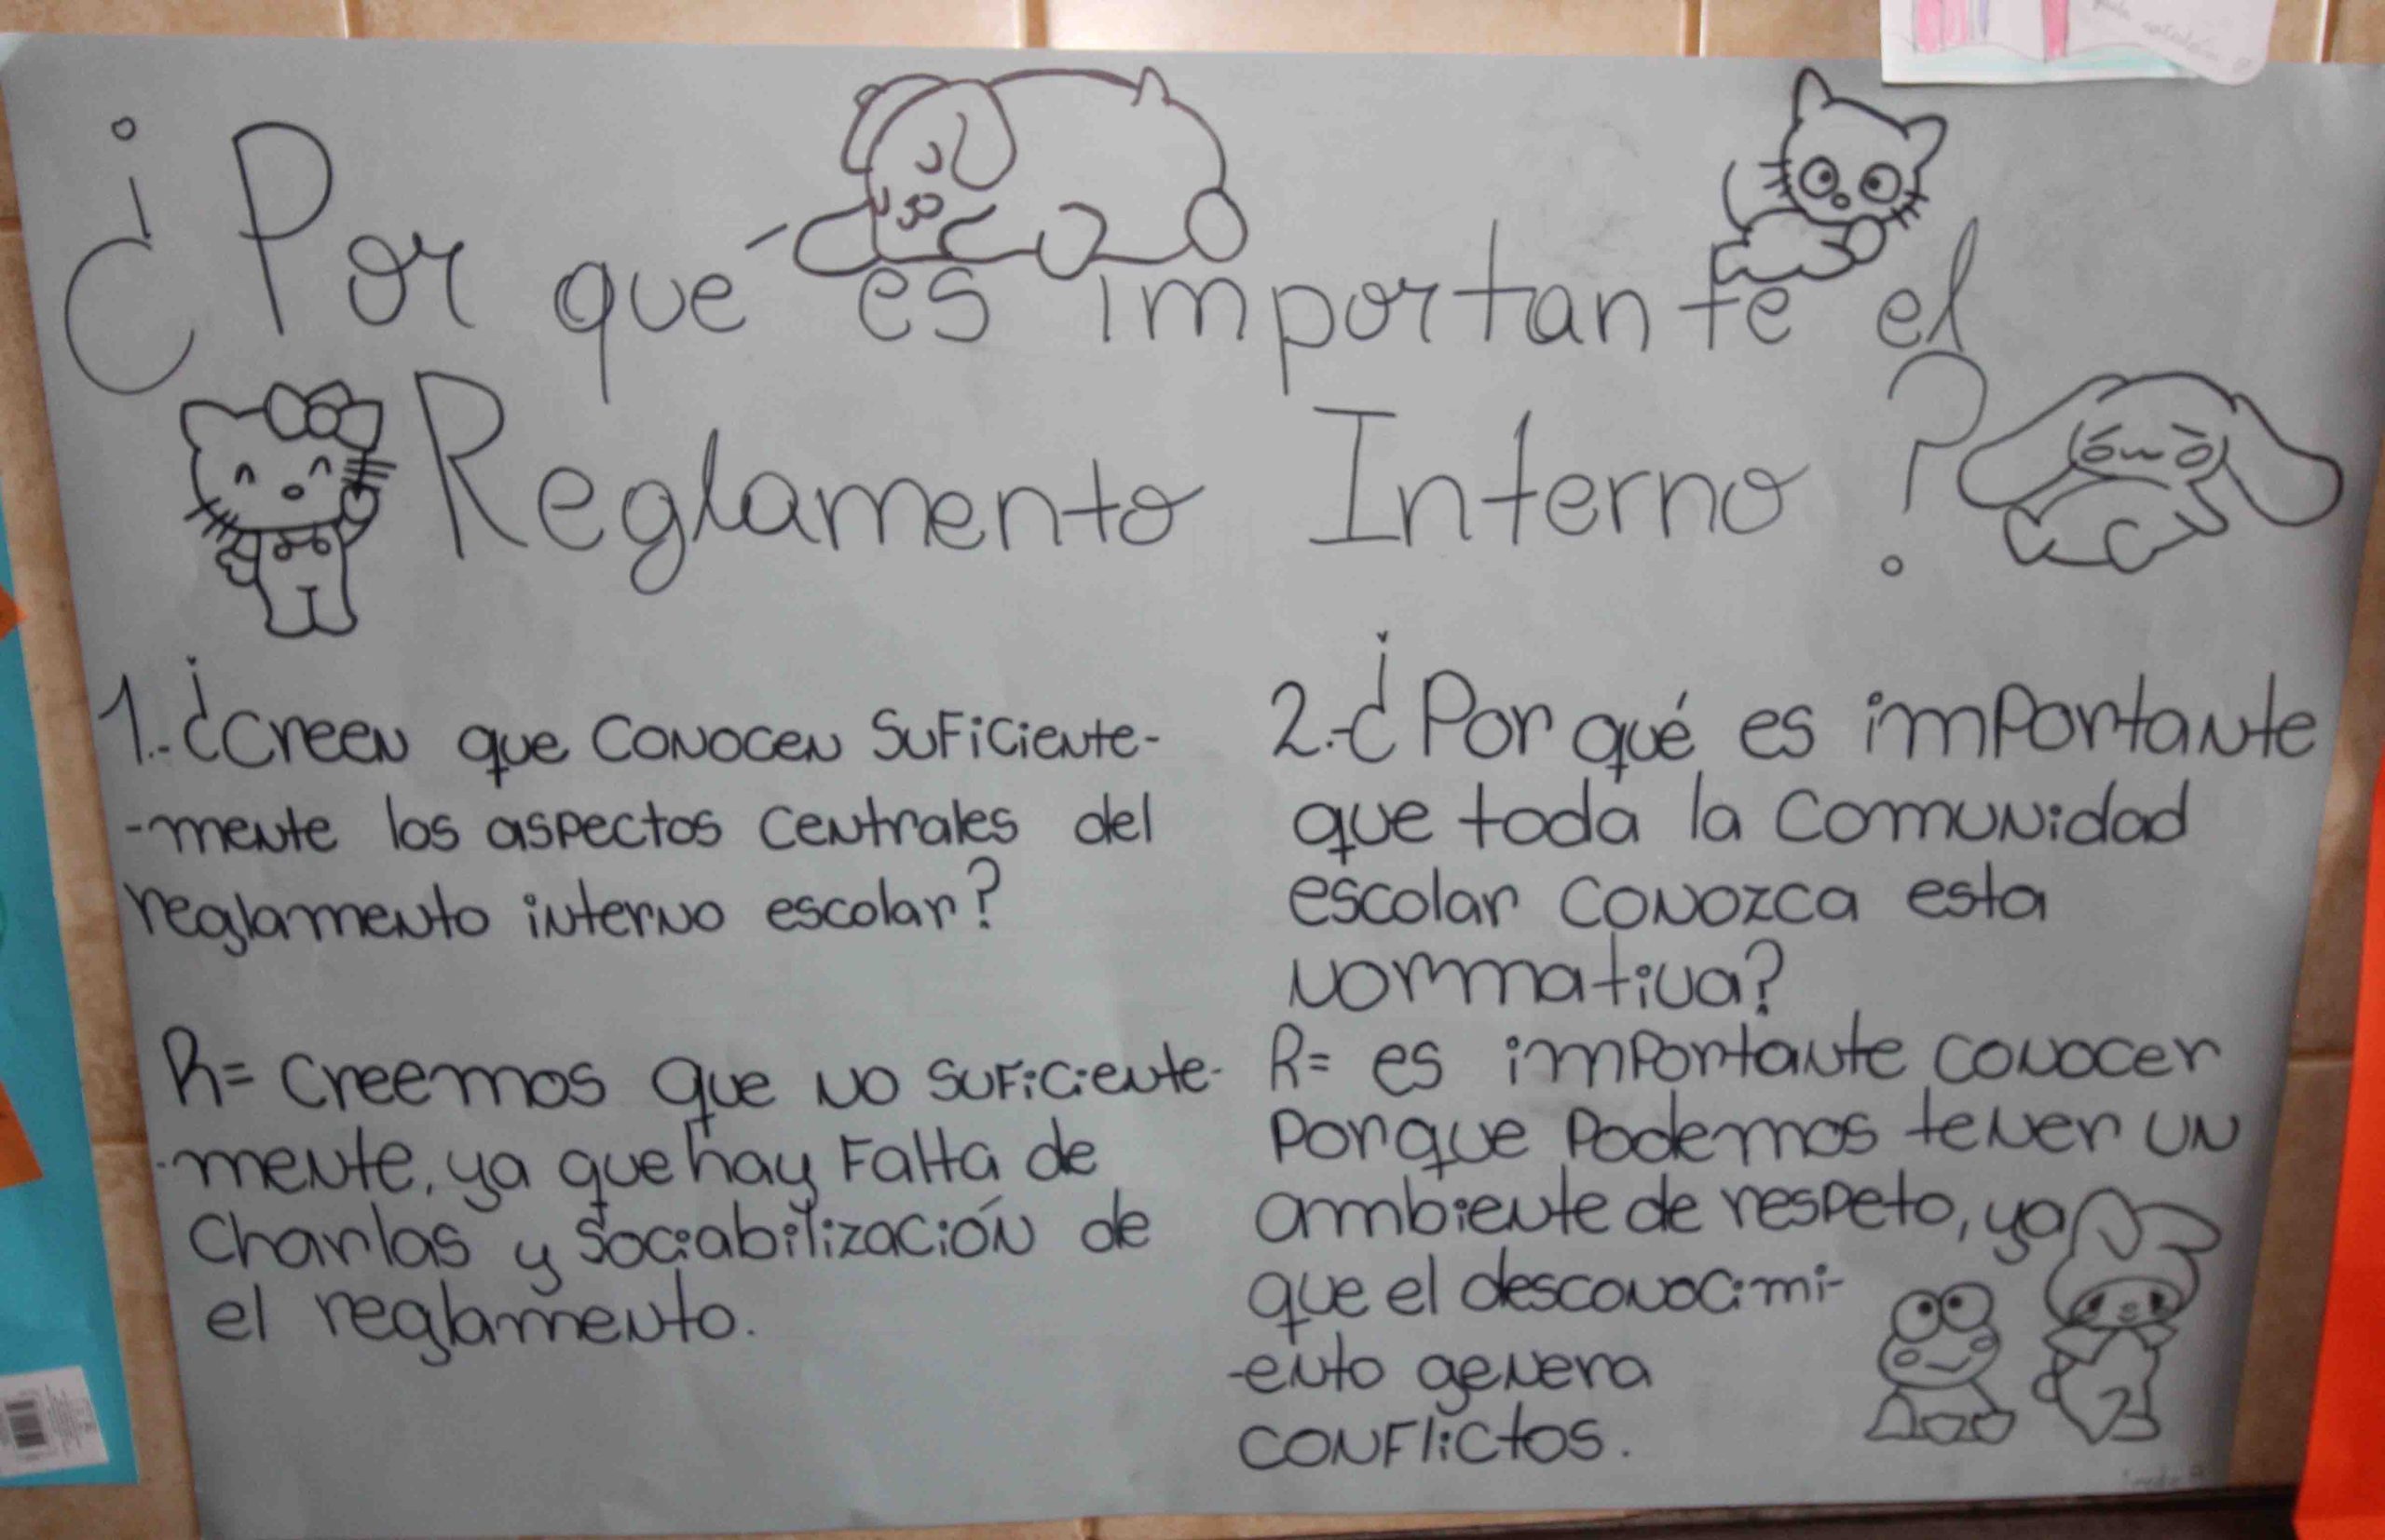 ¿Por qué es importante el
Reglamento Interno?
1.-¿Creen que conocen suficiente-
-mente los aspectos centrales del
reglamento interno escolar?
R= Creemos que no suficiente-
-mente, ya que hay falta de
charlas y sociabilización de
el reglamento.
2.-¿Por qué es importante
que toda la comunidad
escolar conozca esta
normativa?
R= es importante conocer
porque podemos tener un
ambiente de respeto, ya
que el desconocimi-
-ento genera
conflictos.